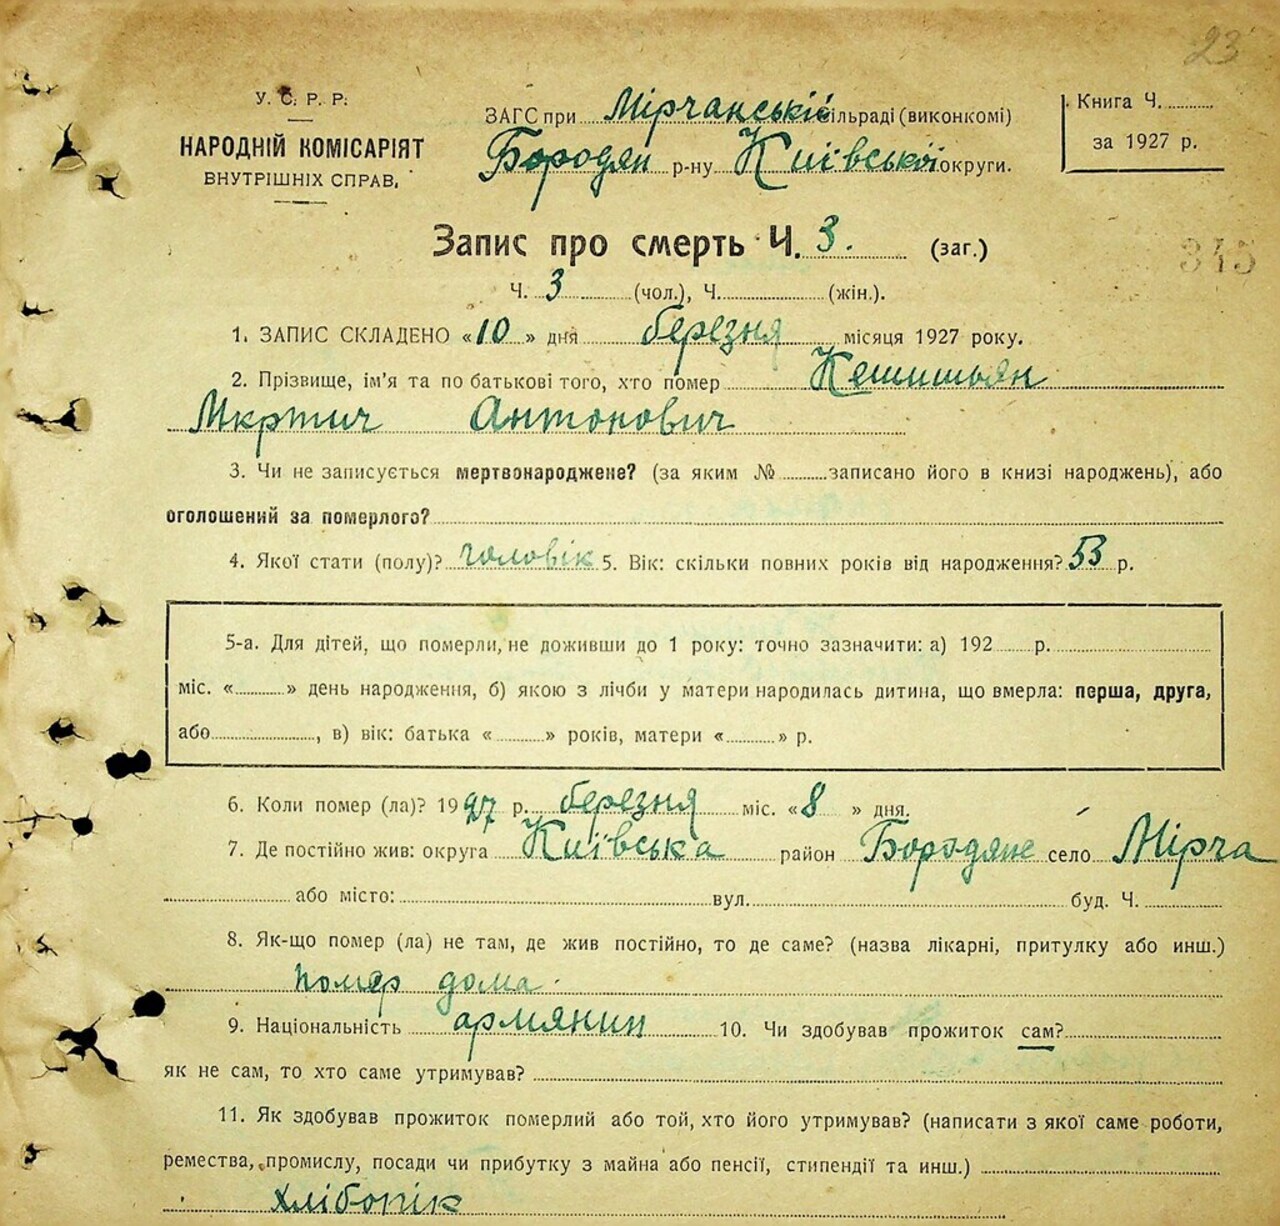 23
У. С. Р. Р.
НАРОДНІЙ КОМІСАРІЯТ
ВНУТРІШНІХ СПРАВ,
ЗАГС при Мірчанській сільраді (виконкомі)
Бородян р-ну Київської округи.
Книга Ч.
за 1927 р.
Запис про смерть Ч. 3. (заг.)
345
Ч. 3 (чол.), Ч. (жін.).
1. ЗАПИС СКЛАДЕНО «10» дня березня місяця 1927 року.
2. Прізвище, ім'я та по батькові того, хто помер Кешишьян
Мкртич Антонович
3. Чи не записується мертвонароджене? (за яким № записано його в книзі народжень), або
оголошений за померлого?
4. Якої стати (полу)? чоловік 5. Вік: скільки повних років від народження? 53 р.
5-а. Для дітей, що померли, не доживши до 1 року: точно зазначити: а) 192 р.
міс. « » день народження, б) якою з лічби у матери народилась дитина, що вмерла: перша, друга,
або , в) вік: батька « » років, матери « » р.
6. Коли помер (ла)? 1927 р. березня міс. «8» дня.
7. Де постійно жив: округа Київська район Бородяне село Мірча
або місто: вул. буд. Ч.
8. Як-що помер (ла) не там, де жив постійно, то де саме? (назва лікарні, притулку або инш.)
помер дома.
9. Національність армянин 10. Чи здобував прожиток сам?
як не сам, то хто саме утримував?
11. Як здобував прожиток померлий або той, хто його утримував? (написати з якої саме роботи,
ремества, промислу, посади чи прибутку з майна або пенсії, стипендії та инш.)
хлібопік